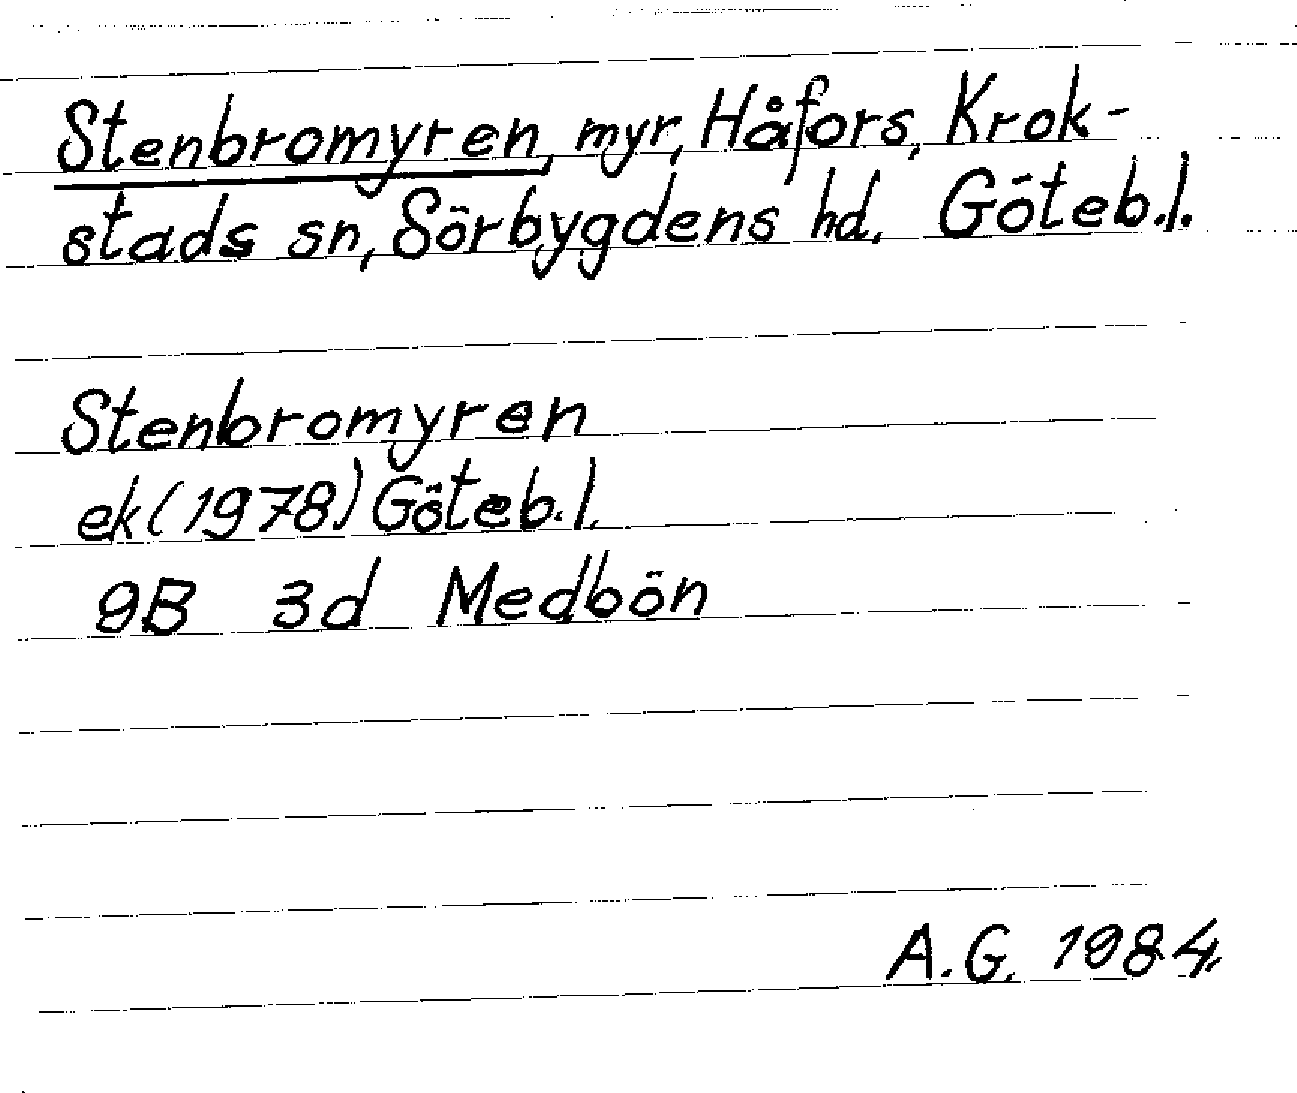 Stenbromyren, myr, Håfors, Krok-
stads sn, Sörbygdens hd. Göteb.l.
Stenbromyren
ek (1978) Göteb.l.
9B 3d Medbön
A.G. 1984.